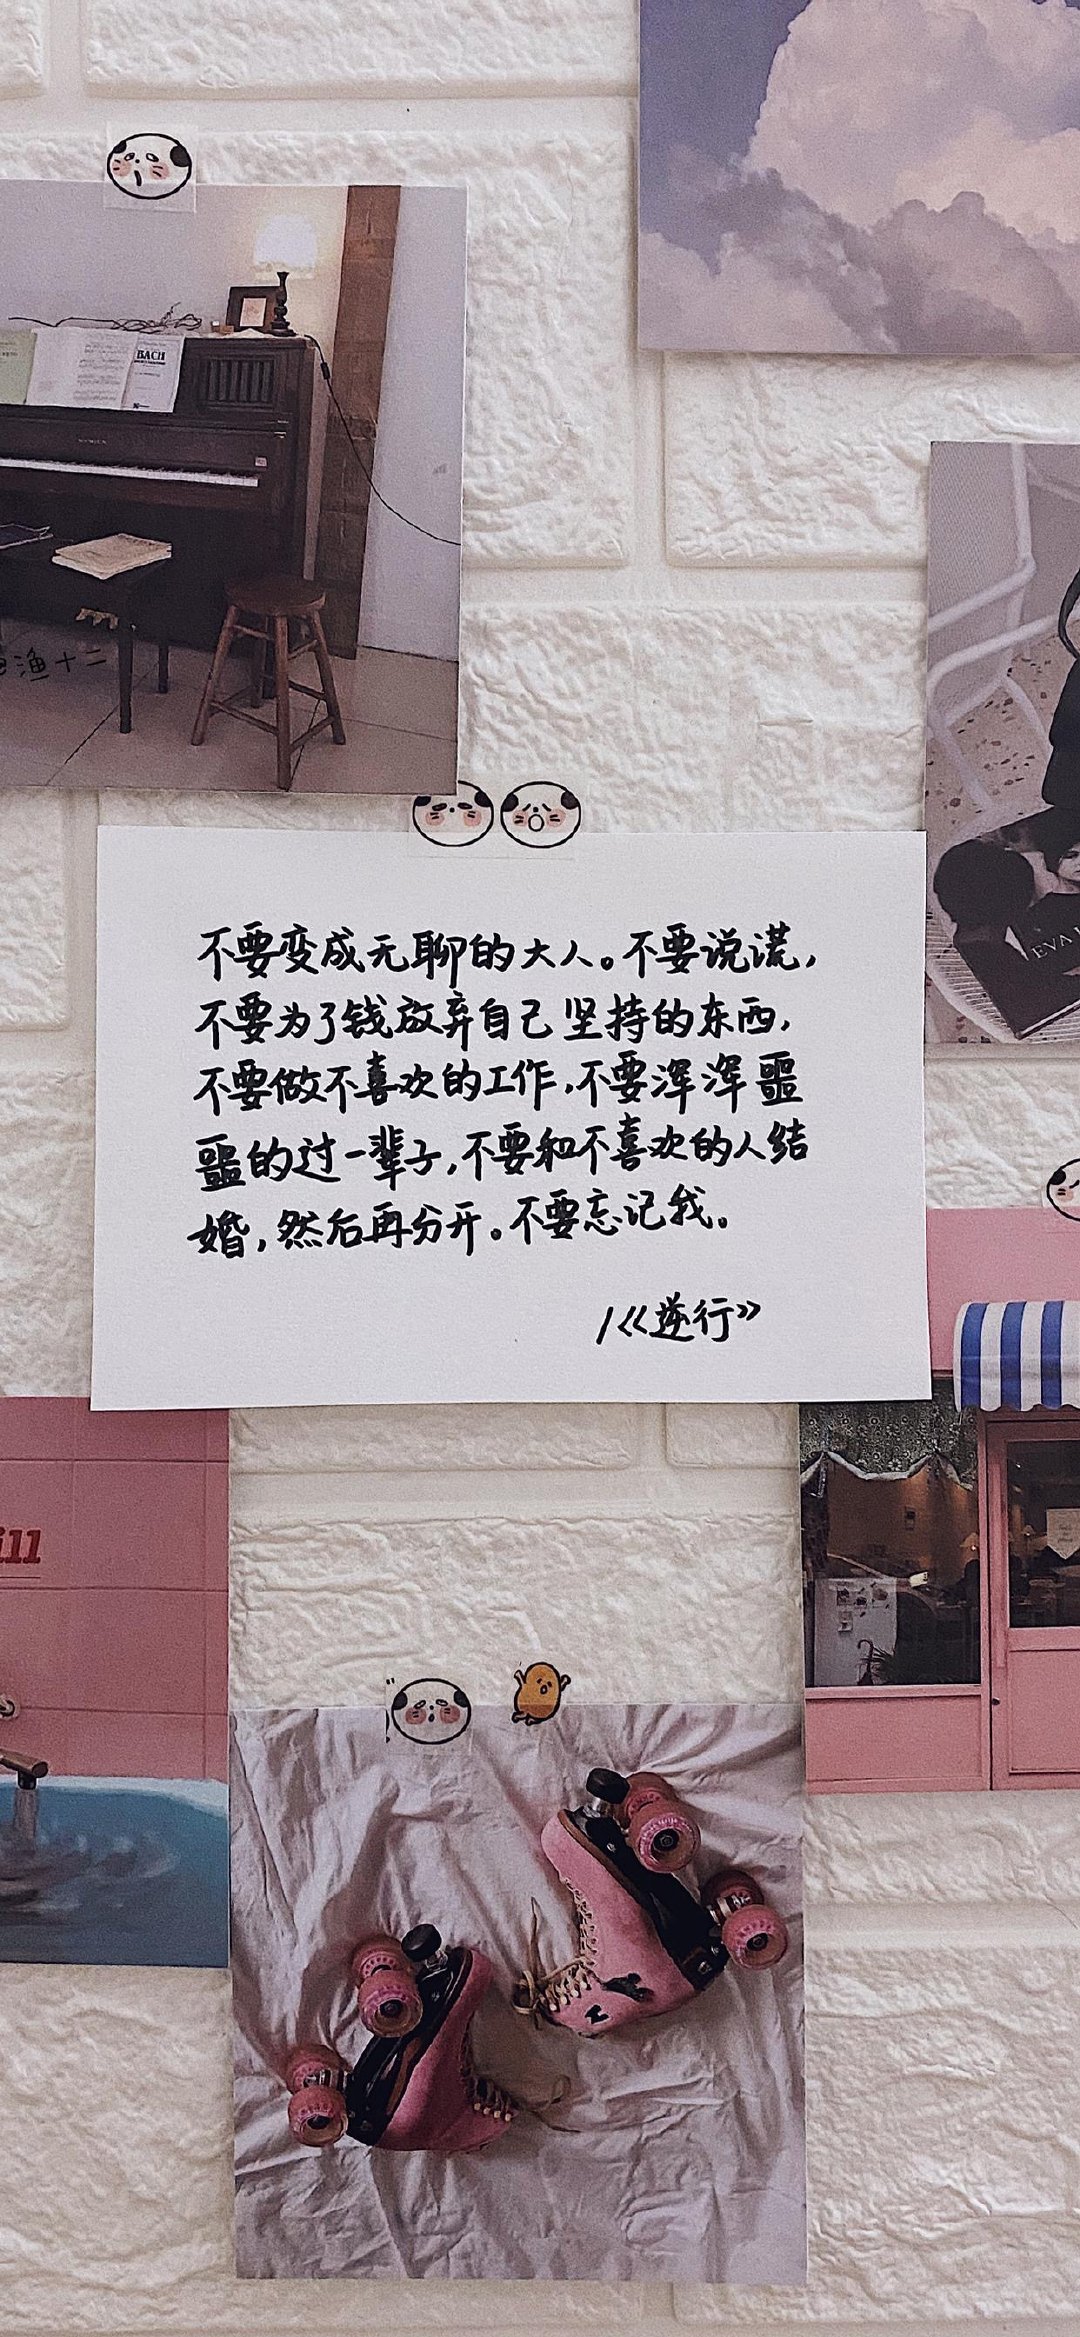 BACH
渔十二
EVA
不要变成无聊的大人。不要说谎,
不要为了钱放弃自己坚持的东西,
不要做不喜欢的工作,不要浑浑噩
噩的过一辈子,不要和不喜欢的人结
婚,然后再分开。不要忘记我。
/《逆行》
ill